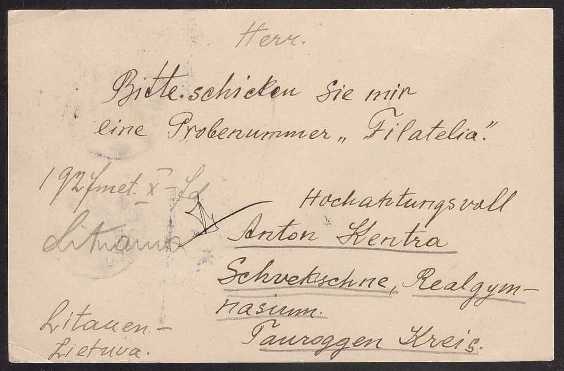 Herr.
Bitte schicken Sie mir
eine Probenummer „Filatelia".
192 met. X –
Hochahtungsvoll
Lituania
Anton Kentra
Schvekschne, Realgym-
nasium.
Tauroggen Kreis.
Litauen –
Lietuva.